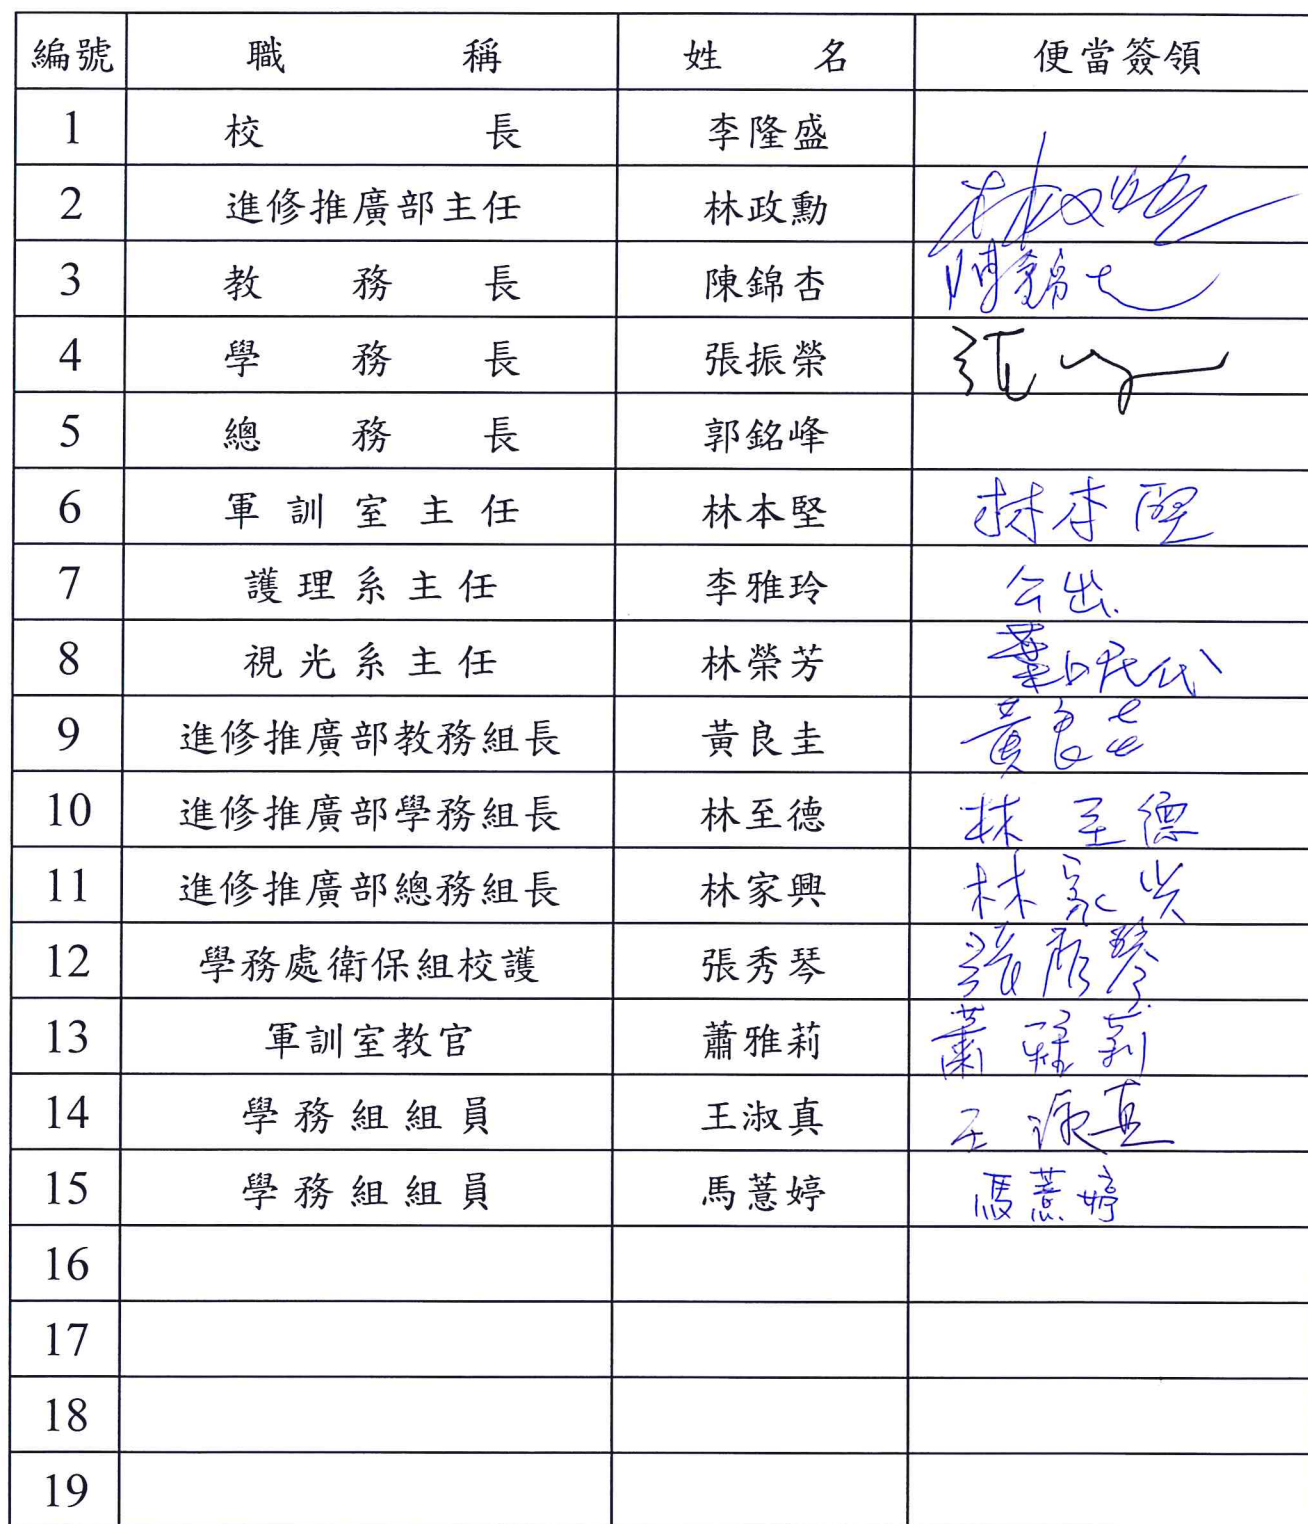 編號 職稱 姓名 便當簽領
1 校長 李隆盛
2 進修推廣部主任 林政勳
3 教務長 陳錦杏 陳錦
4 學務長 張振榮
5 總務長 郭銘峰
6 軍訓室主任 林本堅 林本堅
7 護理系主任 李雅玲 公出
8 視光系主任 林榮芳 代
9 進修推廣部教務組長 黃良圭 黃良圭
10 進修推廣部學務組長 林至德 林至德
11 進修推廣部總務組長 林家興 林家兴
12 學務處衛保組校護 張秀琴 張秀琴
13 軍訓室教官 蕭雅莉 蕭雅莉
14 學務組組員 王淑真 王淑真
15 學務組組員 馬薏婷 馬薏婷
16
17
18
19